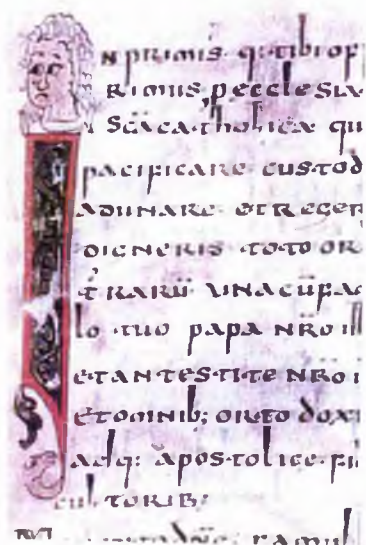 IN primis q: tibi of
Rimus, p ecclesia
Scā catholica qu
pacificare custod
adunare et reger
digneris toto or
t rarū unacū fa
lo tuo papa nro ill
et antestite nro i
et omnib; orto dox
adq: apostolice fi
cultorib:
famul